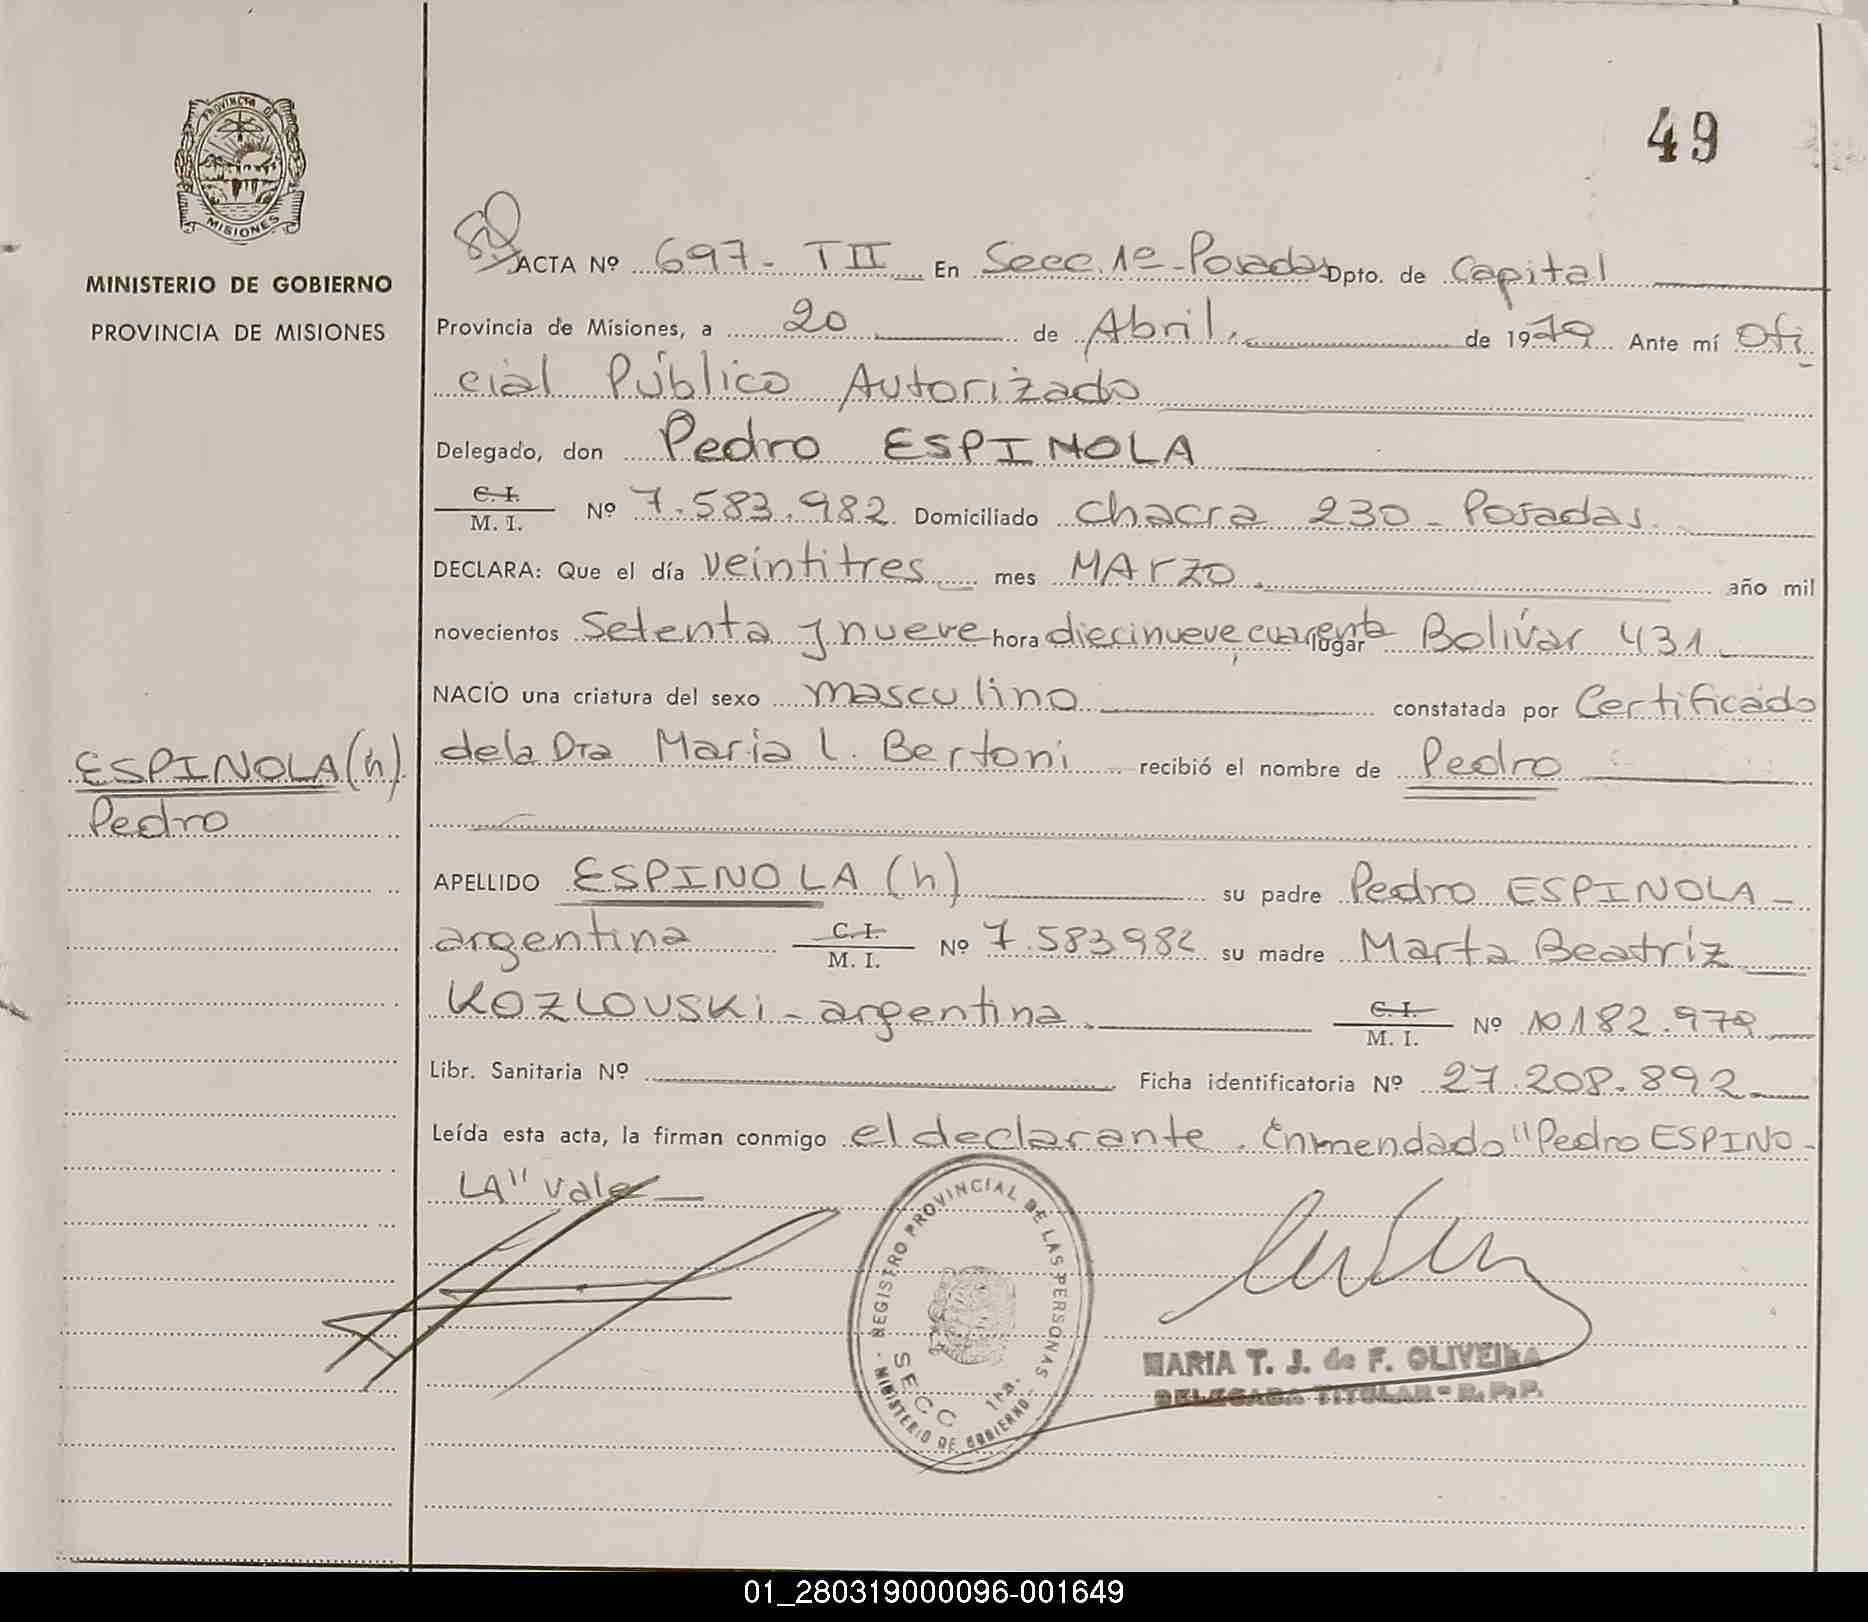 49
PROVINCIA DE
MISIONES
MINISTERIO DE GOBIERNO
PROVINCIA DE MISIONES
ACTA Nº 697 - T II En Secc. 1º - Posadas Dpto. de Capital
Provincia de Misiones, a 20 de Abril. de 1979 Ante mí Ofi
cial Público Autorizado
Delegado, don Pedro ESPINOLA
C. I.
M. I. Nº 7.583.982 Domiciliado Chacra 230 - Posadas.
DECLARA: Que el día veintitres mes MArzo. año mil
novecientos Setenta y nueve hora diecinueve, cuarenta lugar Bolívar 431
NACIO una criatura del sexo masculino constatada por Certificado
de la Dra Maria L. Bertoni recibió el nombre de Pedro
ESPINOLA (h)
Pedro
APELLIDO ESPINOLA (h) su padre Pedro ESPINOLA -
argentina C. I.
M. I. Nº 7.583982 su madre Marta Beatriz
KOZLOUSKi - argentina. C. I.
M. I. Nº 10182.979
Libr. Sanitaria Nº Ficha identificatoria Nº 27.208.892
Leída esta acta, la firman conmigo el declarante. Enmendado "Pedro ESPINO-
LA" Vale
REGISTRO PROVINCIAL DE LAS PERSONAS
SECC 1ra.
MINISTERIO DE GOBIERNO
MARIA T. J. de F. OLIVEIRA
DELEGADA TITULAR - R. P. P.
01_280319000096-001649